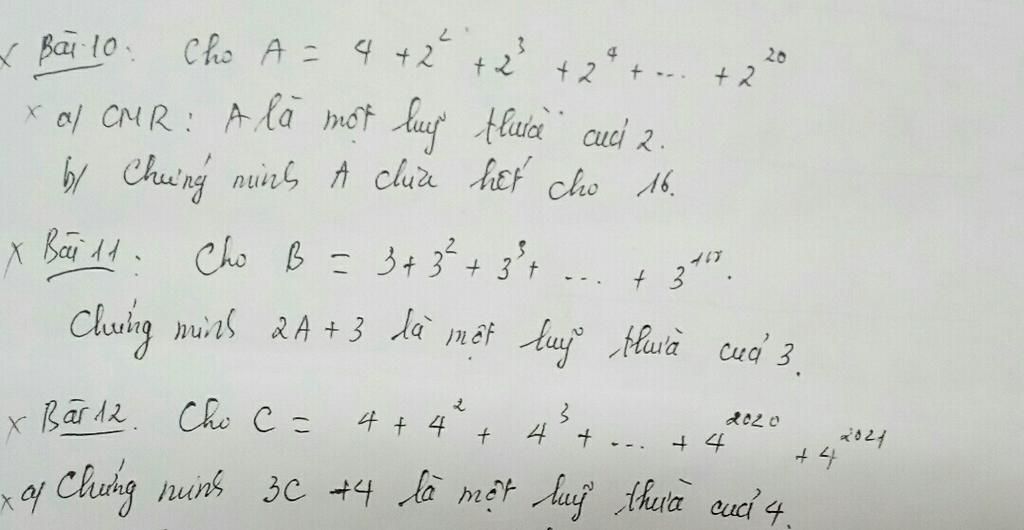 x Bài 10: Cho A = 4 + 2² + 2³ + 2⁴ + ... + 2²⁰
x a/ CMR: A là một luỹ thừa của 2.
b/ Chứng minh A chia hết cho 16.
x Bài 11: Cho B = 3 + 3² + 3³ + ... + 3
Chứng minh 2A + 3 là một luỹ thừa của 3.
x Bài 12. Cho C = 4 + 4² + 4³ + ... + 4²⁰²⁰ + 4²⁰²¹
x a/ Chứng minh 3C + 4 là một luỹ thừa của 4.